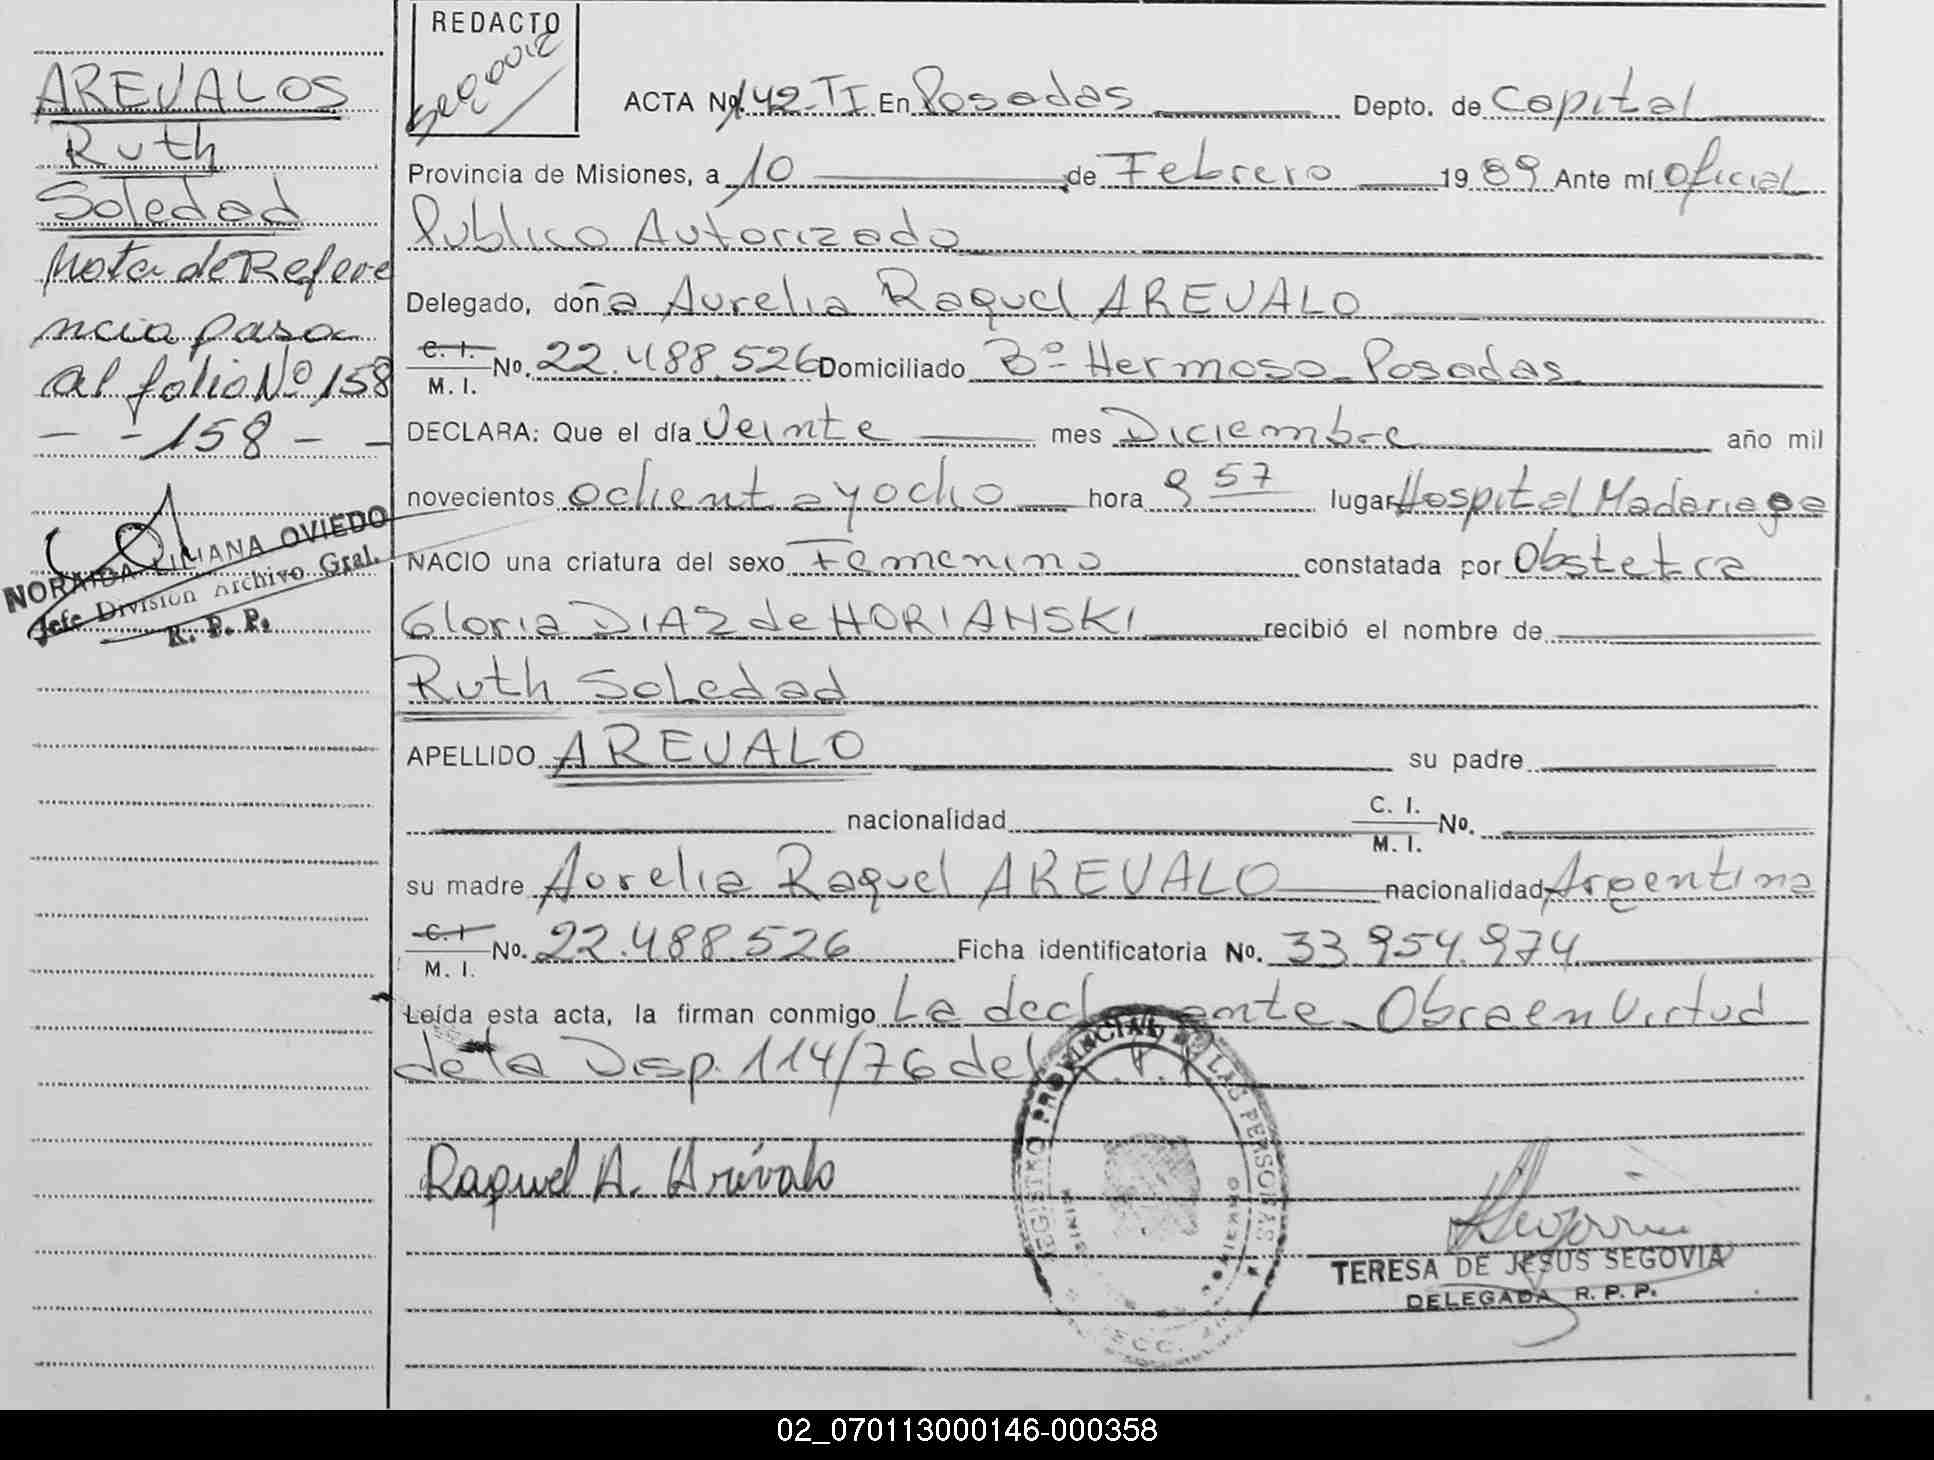 AREVALOS
Ruth
Soledad
Nota de Refere
ncia pasa
al folio Nº 158
- - 158 - -
NORAIDA LILIANA OVIEDO
Jefe Division Archivo Gral.
R. P. P.
REDACTO
Segovia
ACTA Nº 142-TI En Posadas Depto. de Capital
Provincia de Misiones, a 10 de Febrero 19 89 Ante mí Oficial
Publico Autorizado
Delegado, doña Aurelia Raquel AREVALO
C. I.
M. I. No. 22.488.526 Domiciliado Bº Hermoso-Posadas
DECLARA: Que el día Veinte mes Diciembre año mil
novecientos ochenta y ocho hora 9 57 lugar Hospital Madariaga
NACIO una criatura del sexo Femenino constatada por Obstetra
Gloria DIAZ de HORIANSKI recibió el nombre de
Ruth Soledad
APELLIDO AREVALO su padre
nacionalidad C. I.
M. I. No.
su madre Aurelia Raquel AREVALO nacionalidad Argentina
C. I.
M. I. No. 22.488.526 Ficha identificatoria No. 33.954.974
Leída esta acta, la firman conmigo La declarante-Obra en Virtud
de la Disp. 114/76 del R.P.P
Raquel A. Arévalo
REGISTRO PROVINCIAL DE LAS PERSONAS
TERESA DE JESUS SEGOVIA
DELEGADA R. P. P.
02_070113000146-000358